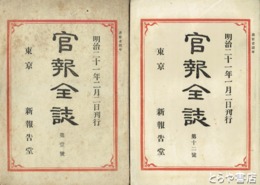 明治二十一年二月二日刊行
官報全誌
第壹號
東京 新報告堂
明治二十一年一月二日刊行
官報全誌
第十二號
東京 新報告堂